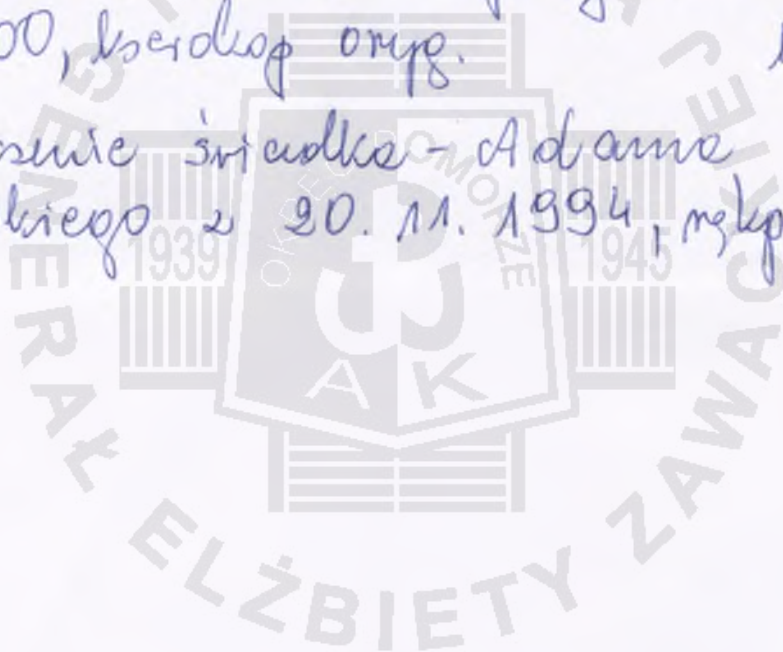 00, kserokop oryg.
senie świadka - Adama
kiego z 20. 11. 1994, rękp
1939 1945
OKRĘG POMORZE
A K
GENERAŁ ELŻBIETY ZAWACKIEJ